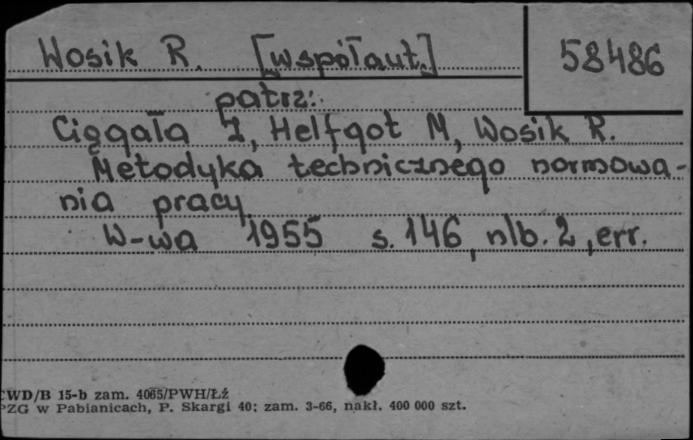 Wosik R. [współaut.]
58486
patrz:
Cięgała I, Helfgot M, Wosik R.
Metodyka technicznego normowa-
nia pracy
W-wa 1955 s. 146, nlb. 2, err.
CWD/B 15-b zam. 4065/PWH/Łź
PZG w Pabianicach, P. Skargi 40; zam. 3-66, nakł. 400 000 szt.